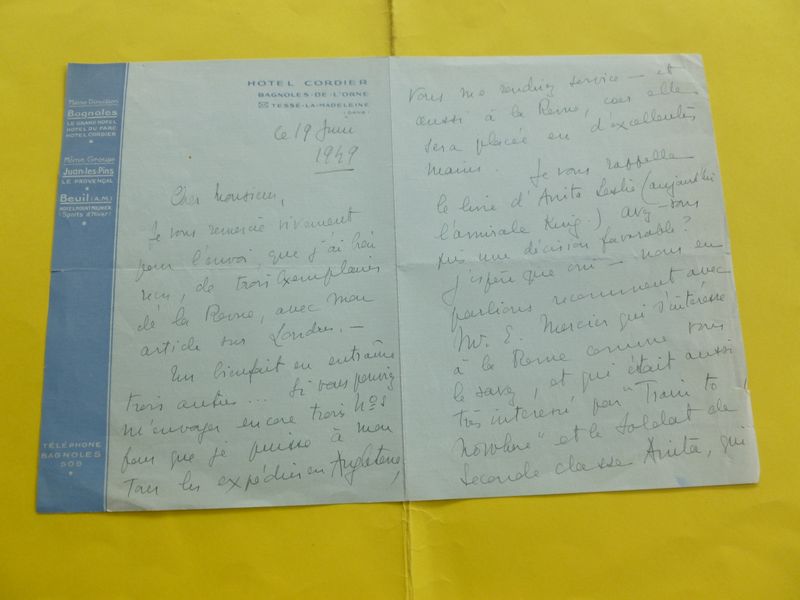 Même Direction
Bagnoles
LE GRAND HOTEL
HOTEL DU PARC
HOTEL CORDIER
Même Groupe
Juan-les-Pins
LE PROVENÇAL
Beuil (A.M.)
(Sports d'Hiver)
TÉLÉPHONE
BAGNOLES
HOTEL CORDIER
BAGNOLES-DE-L'ORNE
TESSÉ-LA-MADELEINE
(ORNE)
ce 19 Juin
1949
Cher Monsieur,
Je vous remercie vivement
pour l'envoi, que j'ai bien
reçu, de trois exemplaires
de la Revue, avec mon
article sur Londres. —
Un bienfait en entraîne
trois autres... Si vous pouviez
m'envoyer encore trois Nos
pour que je puisse à mon
tour les expédier en Angleterre,
vous me rendriez service — et
aussi à la Revue, car elle
sera placée en d'excellentes
mains. Je vous rappelle
le livre d'Anita Leslie (aujourd'hui
l'amirale King.) avez-vous
pu une décision favorable?
J'espère que oui — nous en
parlions récemment avec
Mr. E. Mercier qui s'intéresse
à la Revue comme vous
le savez, et qui était aussi
très intéressé par "Train to
Nowhere" et le Soldat de
Seconde classe Anita, qui